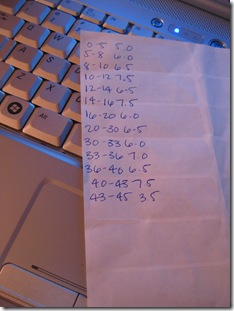 0-5 5.0
5-8 6.0
8-10 6.5
10-12 7.5
12-14 6.5
14-16 7.5
16-20 6.0
20-30 6.5
30-33 6.0
33-36 7.0
36-40 6.5
40-43 7.5
43-45 3.5